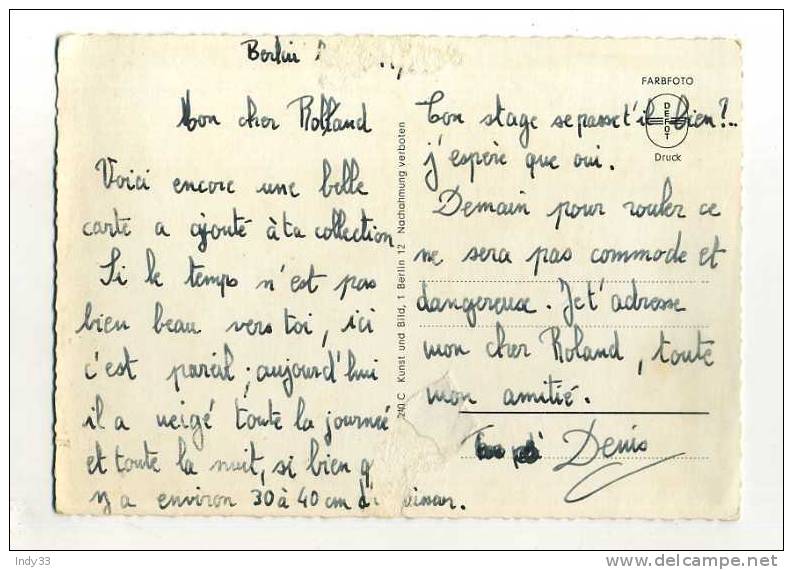 Berlin
Mon cher Rolland
Voici encore une belle
carte a ajouté à ta collection
Si le temps n'est pas
bien beau vers toi, ici
c'est pareil; aujourd'hui
il a neigé toute la journée
et toute la nuit, si bien q
y a environ 30 à 40 cm
Ton stage se passe t'il bien?..
j'espère que oui.
Demain pour rouler ce
ne sera pas commode et
dangereuse. Je t'adresse
mon cher Roland, toute
mon amitié.
Denis
240 C Kunst und Bild, 1 Berlin 12 Nachahmung verboten
FARBFOTO
DEFOT
Druck
Indy33
www.delcampe.net